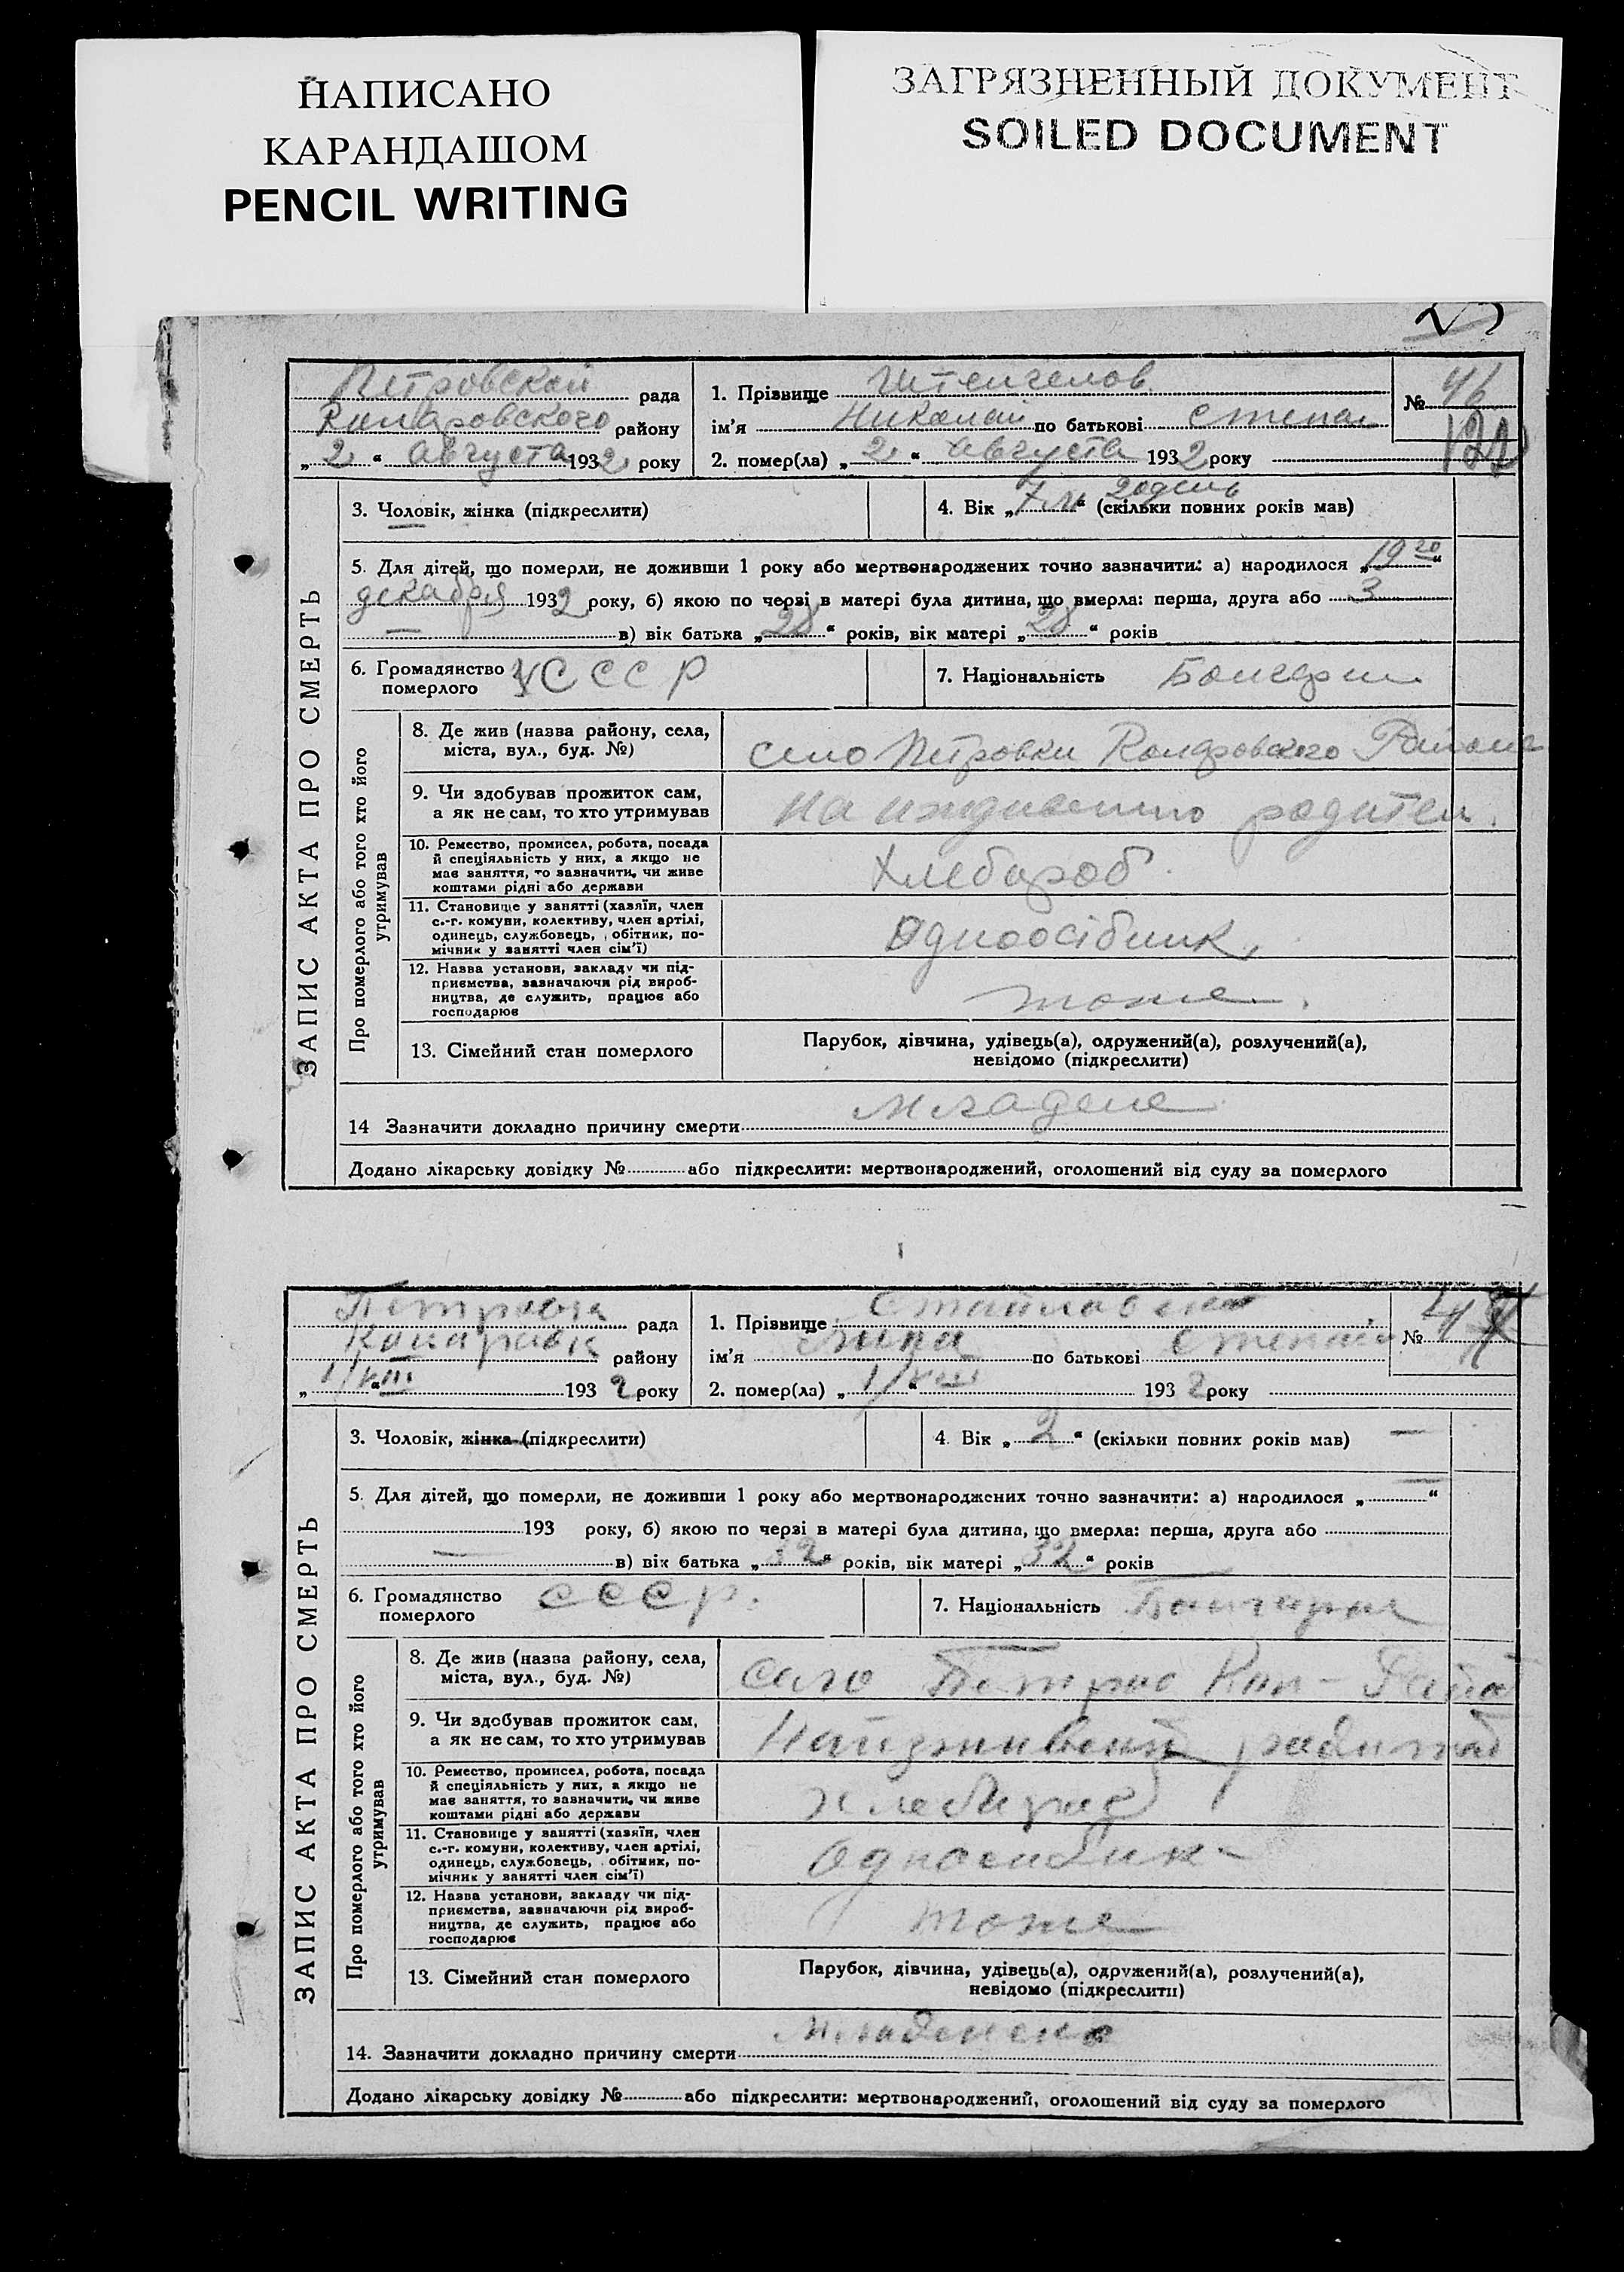 НАПИСАНО
КАРАНДАШОМ
PENCIL WRITING
ЗАГРЯЗНЕННЫЙ ДОКУМЕНТ
SOILED DOCUMENT
ЗАПИС АКТА ПРО СМЕРТЬ
Петровской рада
района району
„2“ августа 1932 року
1. Прізвище
ім'я Николай по батькові Степан
2. помер(ла) „2“ августа 1932 року
№ 46
3. Чоловік, жінка (підкреслити)
4. Вік „7 м“ (скільки повних років мав)
5. Для дітей, що померли, не доживши 1 року або мертвонароджених точно зазначити: а) народилося „19“
декабря 1932 року, б) якою по черзі в матері була дитина, що вмерла: перша, друга або 3
— в) вік батька „28“ років, вік матері „28“ років
6. Громадянство померлого УСССР
7. Національність Болгарин
Про померлого або того хто його утримував
8. Де жив (назва району, села,
міста, вул., буд. №) село Петровки
9. Чи здобував прожиток сам,
а як не сам, то хто утримував на иждивению родител.
10. Ремество, промисел, робота, посада
й спеціяльність у них, а якщо не
має заняття, то зазначити, чи живе
коштами рідні або держави
Хлебороб
11. Становище у занятті (хазяїн, член
с.-г. комуни, колективу, член артілі,
одинець, службовець, обітник, по-
мічник у занятті член сім'ї)
Одноосібник
12. Назва установи, закладу чи під-
приємства, зазначаючи рід вироб-
ництва, де служить, працює або
господарює
тоже
13. Сімейний стан померлого
Парубок, дівчина, удівець(а), одружений(а), розлучений(а),
невідомо (підкреслити)
14 Зазначити докладно причину смерти
Додано лікарську довідку № або підкреслити: мертвонароджений, оголошений від суду за померлого
ЗАПИС АКТА ПРО СМЕРТЬ
рада
району
1/VIII 1932 року
1. Прізвище
ім'я по батькові
2. помер(ла) „1/VIII“ 1932 року
№
3. Чоловік, жінка (підкреслити)
4. Вік „2“ (скільки повних років мав) —
5. Для дітей, що померли, не доживши 1 року або мертвонароджених точно зазначити: а) народилося „—“
193 року, б) якою по черзі в матері була дитина, що вмерла: перша, друга або
— в) вік батька „32“ років, вік матері „32“ років
6. Громадянство померлого СССР.
7. Національність
Про померлого або того хто його утримував
8. Де жив (назва району, села,
міста, вул., буд. №) село
9. Чи здобував прожиток сам,
а як не сам, то хто утримував
10. Ремество, промисел, робота, посада
й спеціяльність у них, а якщо не
має заняття, то зазначити, чи живе
коштами рідні або держави
11. Становище у занятті (хазяїн, член
с.-г. комуни, колективу, член артілі,
одинець, службовець, обітник, по-
мічник у занятті член сім'ї)
12. Назва установи, закладу чи під-
приємства, зазначаючи рід вироб-
ництва, де служить, працює або
господарює
тоже
13. Сімейний стан померлого
Парубок, дівчина, удівець(а), одружений(а), розлучений(а),
невідомо (підкреслити)
14. Зазначити докладно причину смерти
Додано лікарську довідку № або підкреслити: мертвонароджений, оголошений від суду за померлого